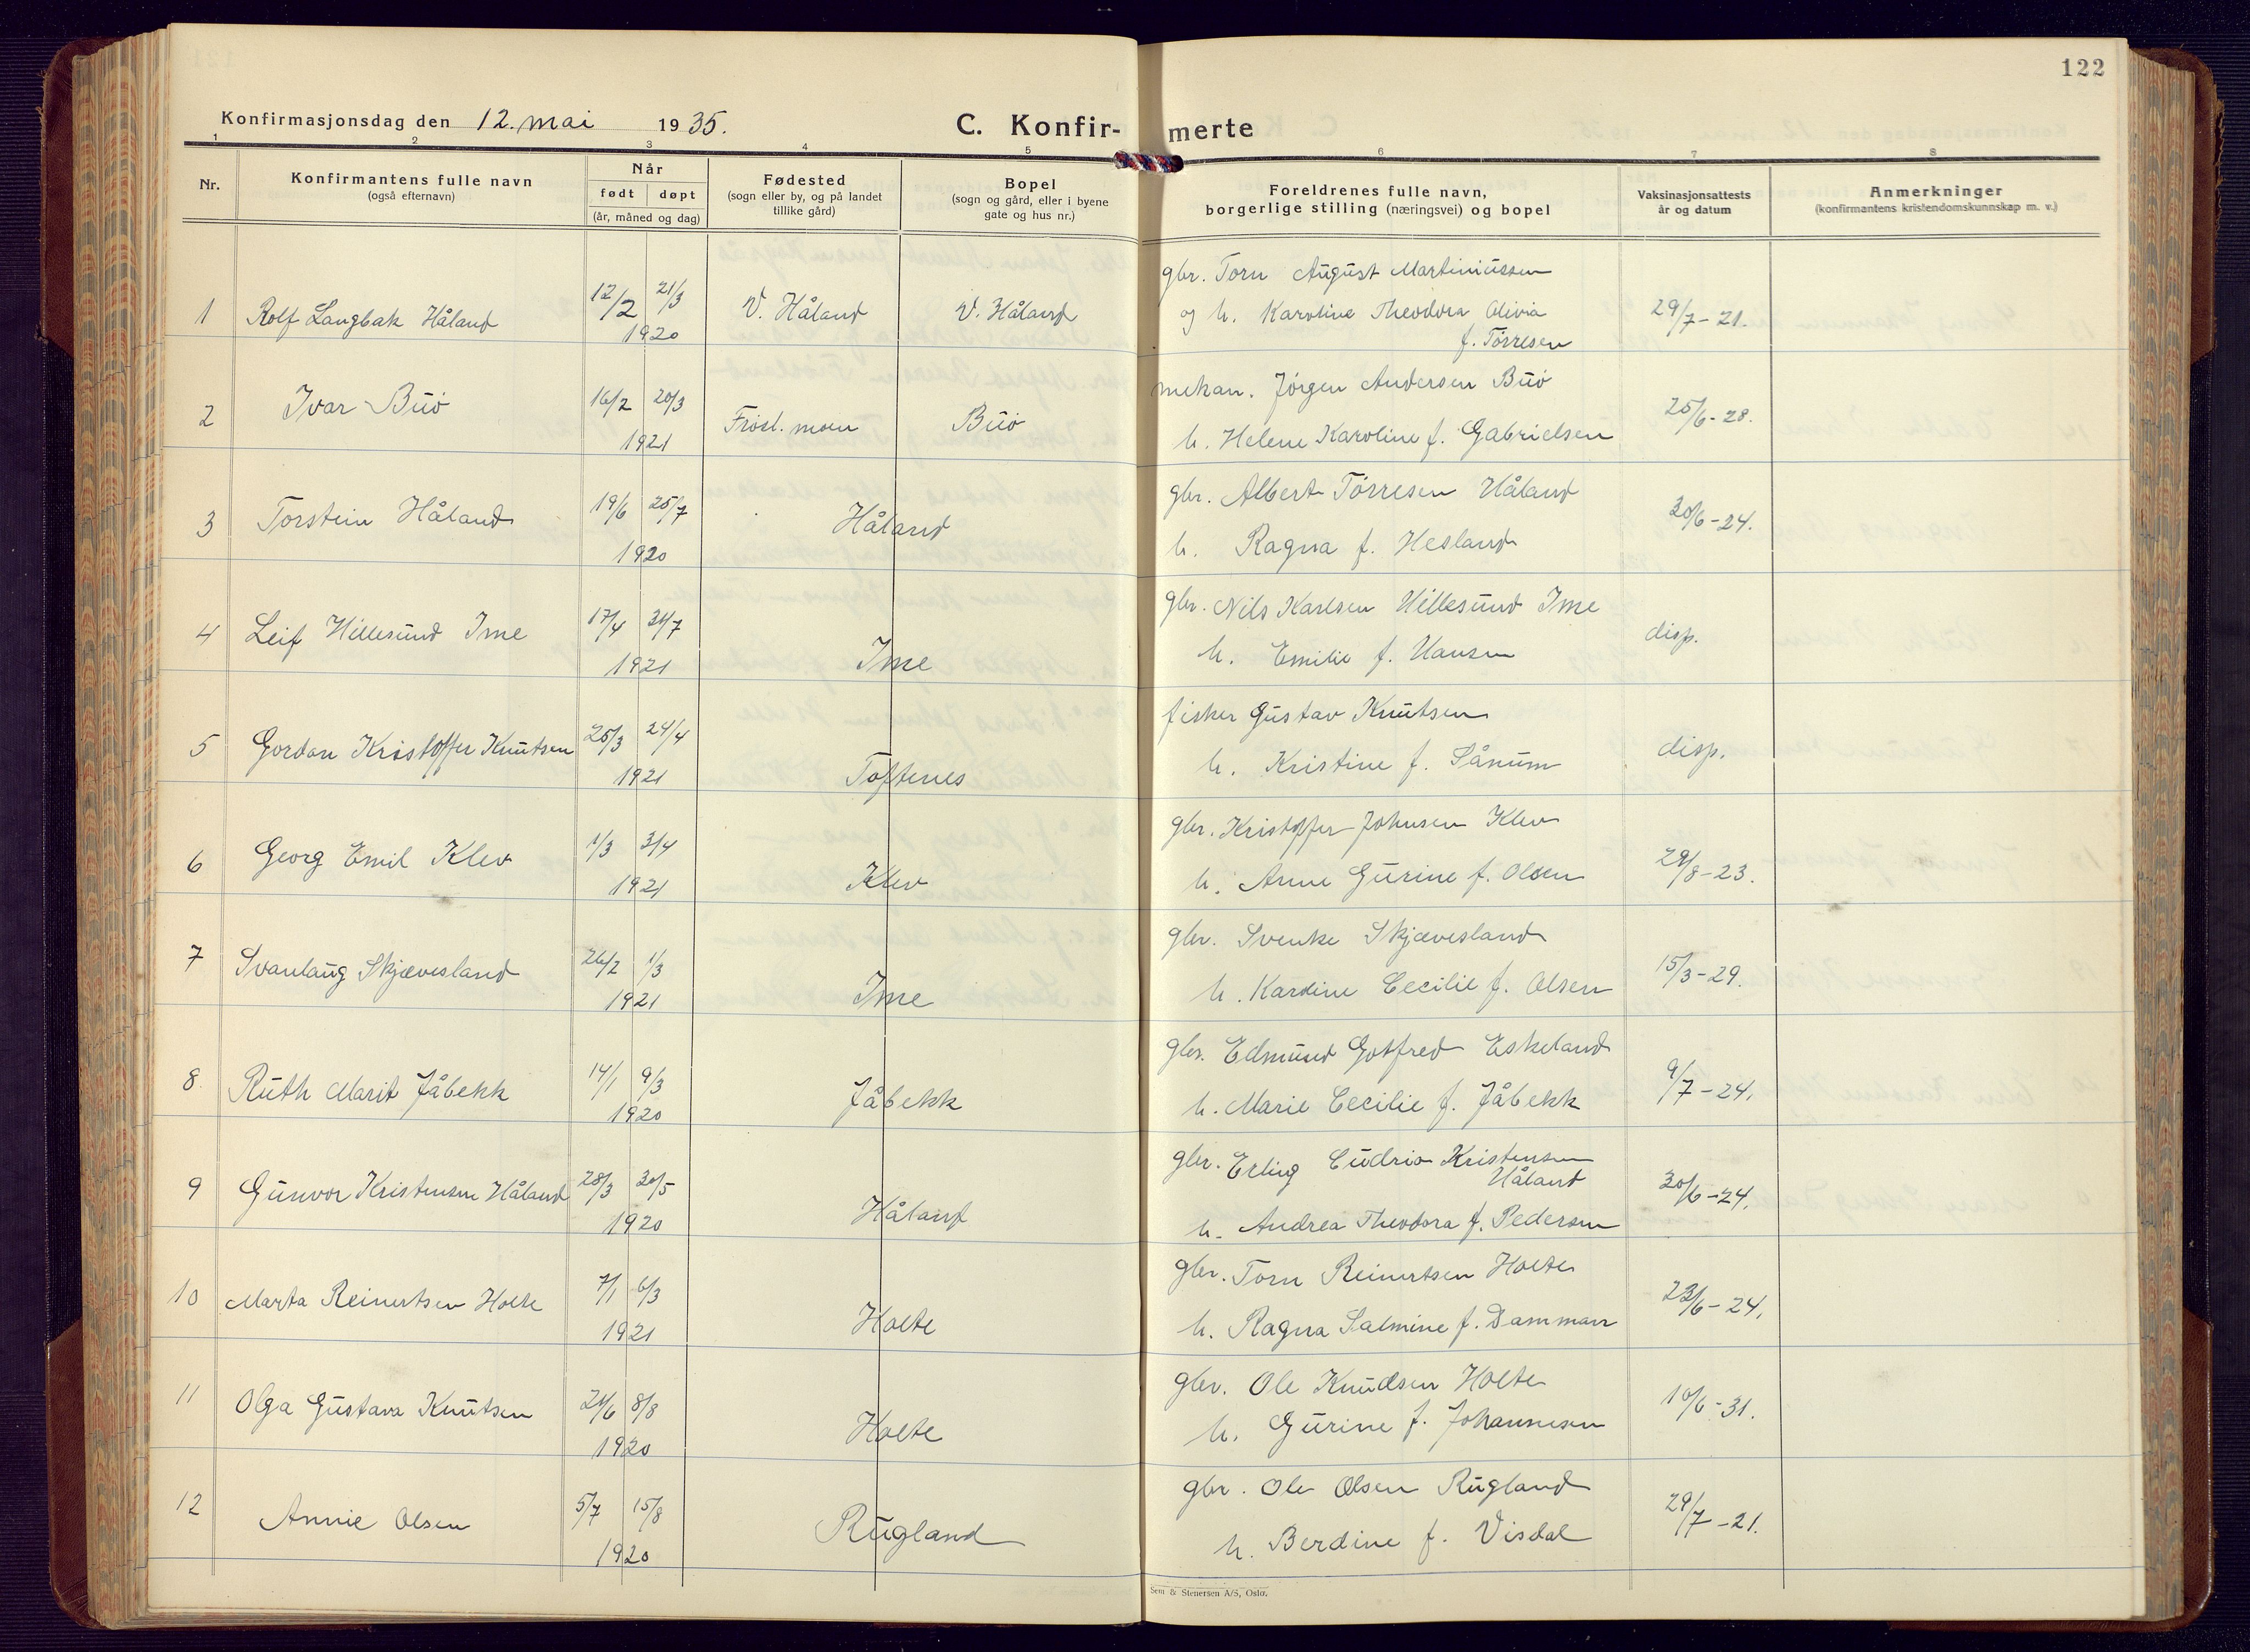 122
Konfirmasjonsdag den 12. mai 1935.
C. Konfir- merte
1 2 3 4 5 6 7 8
Nr.
Konfirmantens fulle navn
(også efternavn)
Når
født døpt
(år, måned og dag)
Fødested
(sogn eller by, og på landet
tillike gård)
Bopel
(sogn og gård, eller i byene
gate og hus nr.)
Foreldrenes fulle navn,
borgerlige stilling (næringsvei) og bopel
Vaksinasjonsattests
år og datum
Anmerkninger
(konfirmantens kristendomskunnskap m. v.)
gbr. Torn August Martiniussen
1 Rolf Langbak Håland 12/2 21/3 V. Håland V. Håland og h. Karoline Theodora Olivia 29/7-21.
1920 f. Tørresen
2 Ivar Buø 16/2 20/3 Frøsl. moen Buø mekan. Jørgen Andersen Buø 25/6-28.
1921 h. Helene Karoline f. Gabrielsen
3 Torstein Håland 19/6 25/7 Håland gbr. Albert Tørresen Håland 30/6-24.
1920 h. Ragna f. Hesland
4 Leif Hillesund Ime 17/4 24/7 Ime gbr. Nils Karlsen Hillesund Ime disp.
1921 h. Emilie f. Hansen
5 Gordon Kristoffer Knutsen 25/3 24/4 Toftenes fisker Gustav Knutsen disp.
1921 h. Kristine f. Sånum
6 Georg Emil Klev 1/3 3/4 Klev gbr. Kristoffer Johnsen Klev 29/8-23.
1921 h. Anne Gurine f. Olsen
7 Svanlaug Skjævesland 26/2 1/3 Ime gbr. Svenke Skjævesland 15/3-29.
1921 h. Karoline Cecilie f. Olsen
8 Ruth Marit Jåbekk 14/1 9/3 Jåbekk gbr. Edmund Gotfred Eskeland 9/7-24.
1920 h. Marie Cecilie f. Jåbekk
9 Gunvor Kristensen Håland 28/3 30/5 Håland gbr. Erling Kristensen Håland 30/6-24.
1920 h. Andrea Theodora f. Pedersen
10 Marta Reinertsen Holte 7/1 6/3 Holte gbr. Torn Reinertsen Holte 23/6-24.
1921 h. Ragna Salmine f. Damman
11 Olga Gustava Knutsen 24/6 8/8 Holte gbr. Ole Knudsen Holte 10/6-31.
1920 h. Gurine f. Johannesen
12 Annie Olsen 5/7 15/8 Rugland gbr. Ole Olsen Rugland 29/7-21.
1920 h. Berdine f. Visdal
Sem & Stenersen A/S, Oslo.